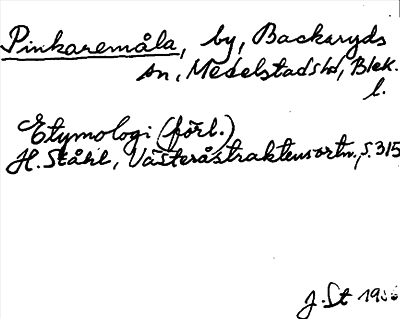 Pinkaremåla, by, Backaryds
sn, Medelstads hd, Blek.
l.
Etymologi (förl.)
H. Ståhl, Västeråstraktens ortn., s. 315
J. St